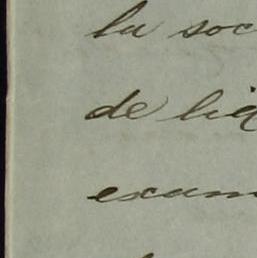 la soc
de liq
exam